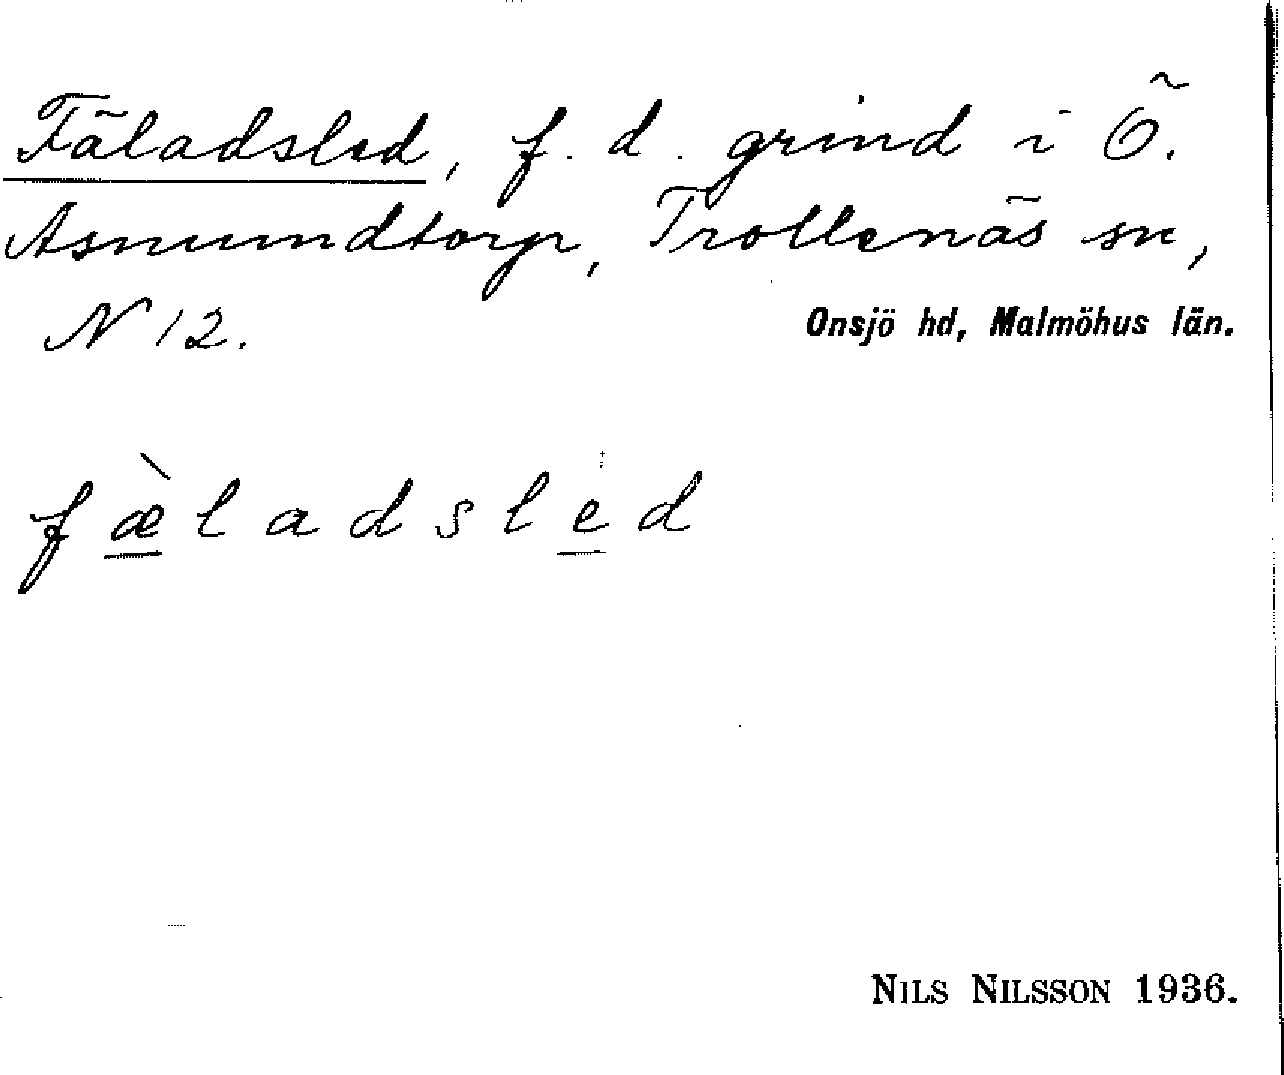 Fäladsled, f. d. grind i Ö.
Asmundtorp, Trollenäs sn,
N 12.
Onsjö hd, Malmöhus län.
fæ̀ladsled
NILS NILSSON 1936.